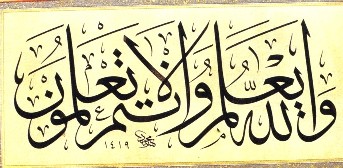 وَاللَّهُ يَعْلَمُ وَأَنْتُمْ لَا تَعْلَمُونَ
١٤١٩